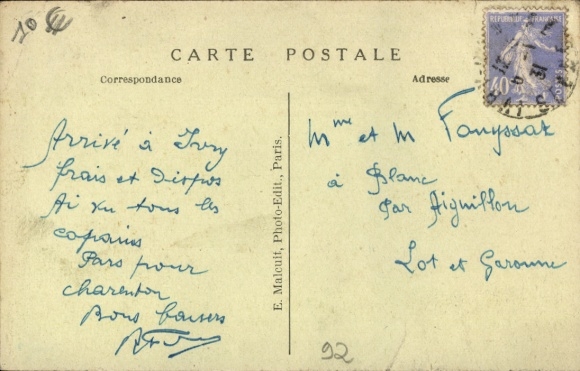 10 €
CARTE POSTALE
Correspondance
Adresse
REPUBLIQUE FRANÇAISE
40
POSTES
Arrivé à Ivry
frais et Dispos
Ai vu tous les
copains
Pars pour
charenton
Bons baisers
E. Malcuit, Photo-Edit., Paris.
Mme et M Fouyssat
à Blanc
Par Aiguillon
Lot et Garonne
92